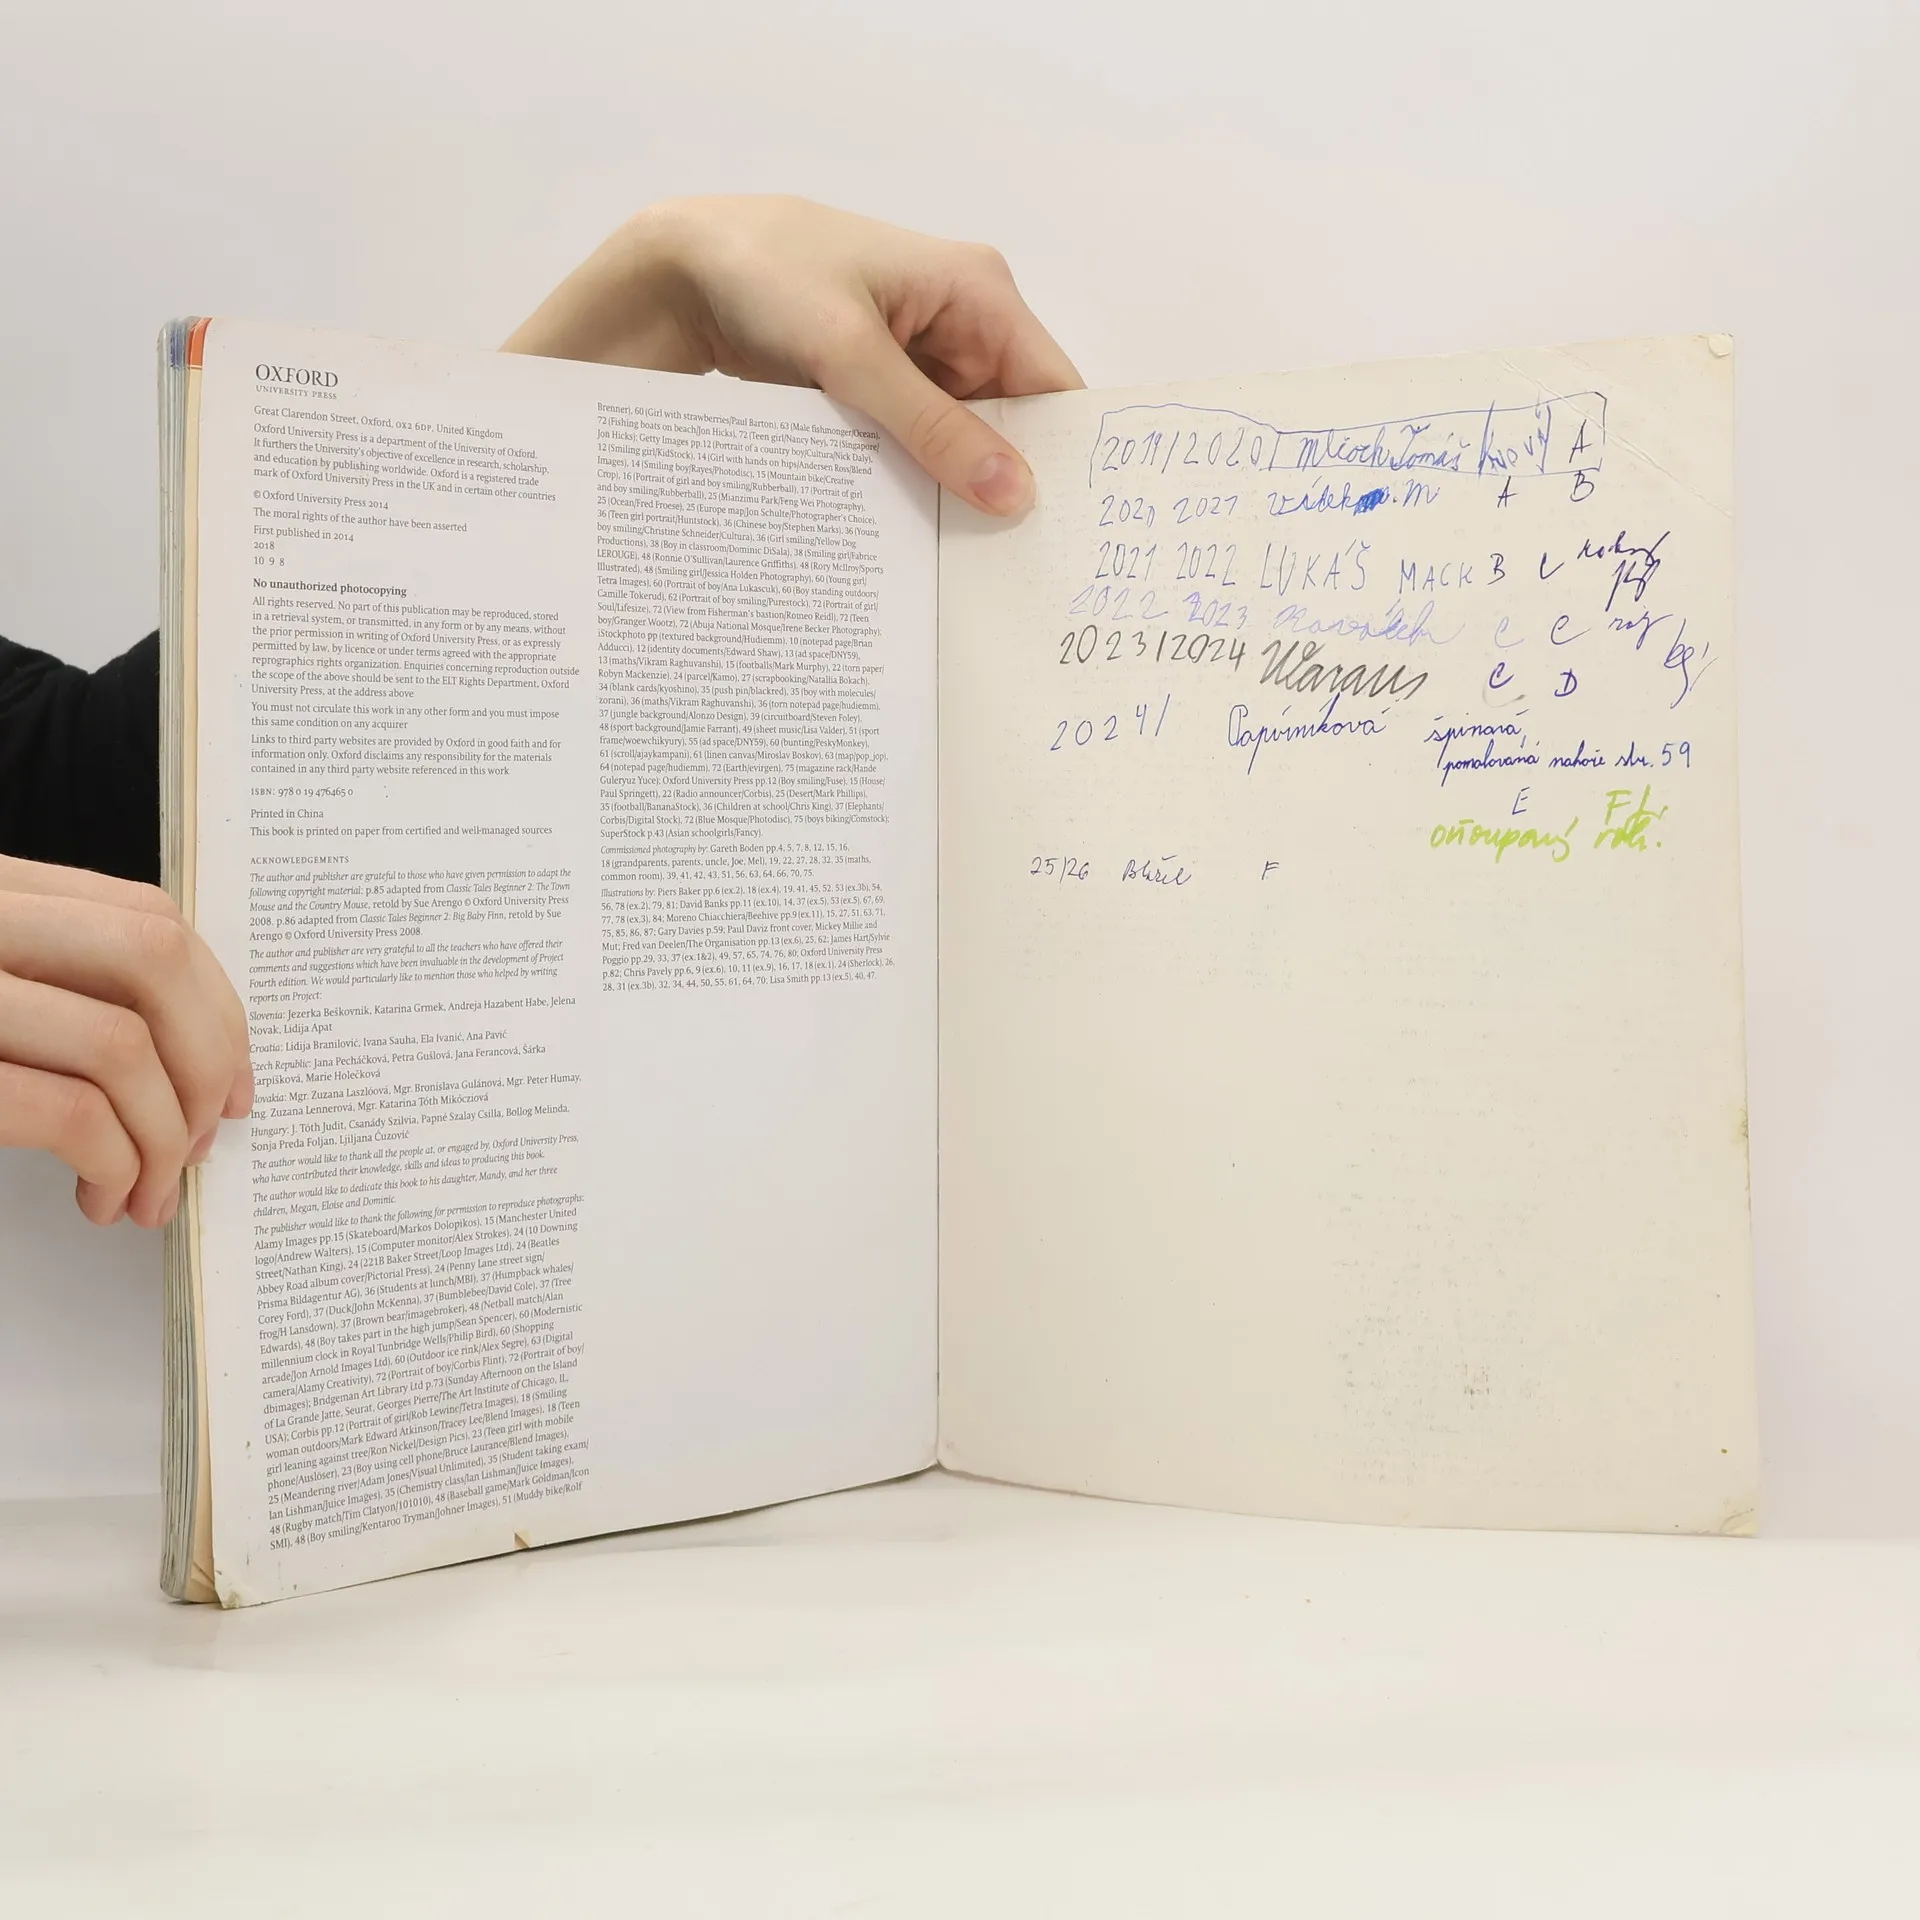 OXFORD
UNIVERSITY PRESS
Great Clarendon Street, Oxford, OX2 6DP, United Kingdom
Oxford University Press is a department of the University of Oxford.
It furthers the University's objective of excellence in research, scholarship,
and education by publishing worldwide. Oxford is a registered trade
mark of Oxford University Press in the UK and in certain other countries
© Oxford University Press 2014
The moral rights of the author have been asserted
First published in 2014
2018
10 9 8
No unauthorized photocopying
All rights reserved. No part of this publication may be reproduced, stored
in a retrieval system, or transmitted, in any form or by any means, without
the prior permission in writing of Oxford University Press, or as expressly
permitted by law, by licence or under terms agreed with the appropriate
reprographics rights organization. Enquiries concerning reproduction outside
the scope of the above should be sent to the ELT Rights Department, Oxford
University Press, at the address above
You must not circulate this work in any other form and you must impose
this same condition on any acquirer
Links to third party websites are provided by Oxford in good faith and for
information only. Oxford disclaims any responsibility for the materials
contained in any third party website referenced in this work
ISBN: 978 0 19 476465 0
Printed in China
This book is printed on paper from certified and well-managed sources
ACKNOWLEDGEMENTS
The author and publisher are grateful to those who have given permission to adapt the
following copyright material: p.85 adapted from Classic Tales Beginner 2: The Town
Mouse and the Country Mouse, retold by Sue Arengo © Oxford University Press
2008. p.86 adapted from Classic Tales Beginner 2: Big Baby Finn, retold by Sue
Arengo © Oxford University Press 2008.
The author and publisher are very grateful to all the teachers who have offered their
comments and suggestions which have been invaluable in the development of Project
Fourth edition. We would particularly like to mention those who helped by writing
reports on Project:
Slovenia: Jezerka Beškovnik, Katarina Grmek, Andreja Hazabent Habe, Jelena
Novak, Lidija Apat
Croatia: Lidija Branilović, Ivana Sauha, Ela Ivanić, Ana Pavić
Czech Republic: Jana Pecháčková, Petra Gušlová, Jana Ferancová, Šárka
Karpíšková, Marie Holečková
Slovakia: Mgr. Zuzana Laszlóová, Mgr. Bronislava Gulánová, Mgr. Peter Humay,
Ing. Zuzana Lennerová, Mgr. Katarina Tóth Mikócziová
Hungary: J. Tóth Judit, Csanády Szilvia, Papné Szalay Csilla, Bollog Melinda,
Sonja Preda Foljan, Ljiljana Ćuzović
The author would like to thank all the people at, or engaged by, Oxford University Press,
who have contributed their knowledge, skills and ideas to producing this book.
The author would like to dedicate this book to his daughter, Mandy, and her three
children, Megan, Eloise and Dominic.
The publisher would like to thank the following for permission to reproduce photographs:
Alamy Images pp.15 (Skateboard/Markos Dolopikos), 15 (Manchester United
logo/Andrew Walters), 15 (Computer monitor/Alex Strokes), 24 (10 Downing
Street/Nathan King), 24 (221B Baker Street/Loop Images Ltd), 24 (Beatles
Abbey Road album cover/Pictorial Press), 24 (Penny Lane street sign/
Prisma Bildagentur AG), 36 (Students at lunch/MBI), 37 (Humpback whales/
Corey Ford), 37 (Duck/John McKenna), 37 (Bumblebee/David Cole), 37 (Tree
frog/H Lansdown), 37 (Brown bear/imagebroker), 48 (Netball match/Alan
Edwards), 48 (Boy takes part in the high jump/Sean Spencer), 60 (Modernistic
millennium clock in Royal Tunbridge Wells/Philip Bird), 60 (Shopping
arcade/Jon Arnold Images Ltd), 60 (Outdoor ice rink/Alex Segre), 63 (Digital
camera/Alamy Creativity), 72 (Portrait of boy/Corbis Flint), 72 (Portrait of boy/
dbimages); Bridgeman Art Library Ltd p.73 (Sunday Afternoon on the Island
of La Grande Jatte, Seurat, Georges Pierre/The Art Institute of Chicago, IL,
USA); Corbis pp.12 (Portrait of girl/Rob Lewine/Tetra Images), 18 (Smiling
woman outdoors/Mark Edward Atkinson/Tracey Lee/Blend Images), 18 (Teen
girl leaning against tree/Ron Nickel/Design Pics), 23 (Teen girl with mobile
phone/Auslöser), 23 (Boy using cell phone/Bruce Laurance/Blend Images),
25 (Meandering river/Adam Jones/Visual Unlimited), 35 (Student taking exam/
Ian Lishman/Juice Images), 35 (Chemistry class/Ian Lishman/Juice Images),
48 (Rugby match/Tim Clatyon/101010), 48 (Baseball game/Mark Goldman/Icon
SMI), 48 (Boy smiling/Kentaroo Tryman/Johner Images), 51 (Muddy bike/Rolf
Brenner), 60 (Girl with strawberries/Paul Barton), 63 (Male fishmonger/Ocean),
72 (Fishing boats on beach/Jon Hicks), 72 (Teen girl/Nancy Ney), 72 (Singapore/
Jon Hicks); Getty Images pp.12 (Portrait of a country boy/Cultura/Nick Daly),
12 (Smiling girl/KidStock), 14 (Girl with hands on hips/Andersen Ross/Blend
Images), 14 (Smiling boy/Rayes/Photodisc), 15 (Mountain bike/Creative
Crop), 16 (Portrait of girl and boy smiling/Rubberball), 17 (Portrait of girl
and boy smiling/Rubberball), 25 (Mianzimu Park/Feng Wei Photography),
25 (Ocean/Fred Froese), 25 (Europe map/Jon Schulte/Photographer's Choice),
36 (Teen girl portrait/Huntstock), 36 (Chinese boy/Stephen Marks), 36 (Young
boy smiling/Christine Schneider/Cultura), 36 (Girl smiling/Yellow Dog
Productions), 38 (Boy in classroom/Dominic DiSala), 38 (Smiling girl/Fabrice
LEROUGE), 48 (Ronnie O'Sullivan/Laurence Griffiths), 48 (Rory McIlroy/Sports
Illustrated), 48 (Smiling girl/Jessica Holden Photography), 60 (Young girl/
Tetra Images), 60 (Portrait of boy/Ana Lukascuk), 60 (Boy standing outdoors/
Camille Tokerud), 62 (Portrait of boy smiling/Purestock), 72 (Portrait of girl/
Soul/Lifesize), 72 (View from Fisherman's bastion/Romeo Reidl), 72 (Teen
boy/Granger Wootz), 72 (Abuja National Mosque/Irene Becker Photography);
iStockphoto pp (textured background/Hudiemm), 10 (notepad page/Brian
Adducci), 12 (identity documents/Edward Shaw), 13 (ad space/DNY59),
13 (maths/Vikram Raghuvanshi), 15 (footballs/Mark Murphy), 22 (torn paper/
Robyn Mackenzie), 24 (parcel/Kamo), 27 (scrapbooking/Natallia Bokach),
34 (blank cards/kyoshino), 35 (push pin/blackred), 35 (boy with molecules/
zorani), 36 (maths/Vikram Raghuvanshi), 36 (torn notepad page/hudiemm),
37 (jungle background/Alonzo Design), 39 (circuitboard/Steven Foley),
48 (sport background/Jamie Farrant), 49 (sheet music/Lisa Valder), 51 (sport
frame/woewchikyury), 55 (ad space/DNY59), 60 (bunting/PeskyMonkey),
61 (scroll/ajaykampani), 61 (linen canvas/Miroslav Boskov), 63 (map/pop_jop),
64 (notepad page/hudiemm), 72 (Earth/evirgen), 75 (magazine rack/Hande
Guleryuz Yuce); Oxford University Press pp.12 (Boy smiling/Fuse), 15 (House/
Paul Springett), 22 (Radio announcer/Corbis), 25 (Desert/Mark Phillips),
35 (football/BananaStock), 36 (Children at school/Chris King), 37 (Elephants/
Corbis/Digital Stock), 72 (Blue Mosque/Photodisc), 75 (boys biking/Comstock);
SuperStock p.43 (Asian schoolgirls/Fancy).
Commissioned photography by: Gareth Boden pp.4, 5, 7, 8, 12, 15, 16,
18 (grandparents, parents, uncle, Joe, Mel), 19, 22, 27, 28, 32, 35 (maths,
common room), 39, 41, 42, 43, 51, 56, 63, 64, 66, 70, 75.
Illustrations by: Piers Baker pp.6 (ex.2), 18 (ex.4), 19, 41, 45, 52, 53 (ex.3b), 54,
56, 78 (ex.2), 79, 81; David Banks pp.11 (ex.10), 14, 37 (ex.5), 53 (ex.5), 67, 69,
77, 78 (ex.3), 84; Moreno Chiacchiera/Beehive pp.9 (ex.11), 15, 27, 51, 63, 71,
75, 85, 86, 87; Gary Davies p.59; Paul Daviz front cover, Mickey Millie and
Mut; Fred van Deelen/The Organisation pp.13 (ex.6), 25, 62; James Hart/Sylvie
Poggio pp.29, 33, 37 (ex.1&2), 49, 57, 65, 74, 76, 80; Oxford University Press
p.82; Chris Pavely pp.6, 9 (ex.6), 10, 11 (ex.9), 16, 17, 18 (ex.1), 24 (Sherlock), 26,
28, 31 (ex.3b), 32, 34, 44, 50, 55, 61, 64, 70; Lisa Smith pp.13 (ex.5), 40, 47.
2019/2020 Mlčoch Tomáš A
2020 2021 M A B
2021 2022 LUKÁŠ MACK B
2022 2023 C C
2023/2024 C D
2024/ Papírníková špinavá,
pomalovaná nahoře str. 59
E F
25/26 F